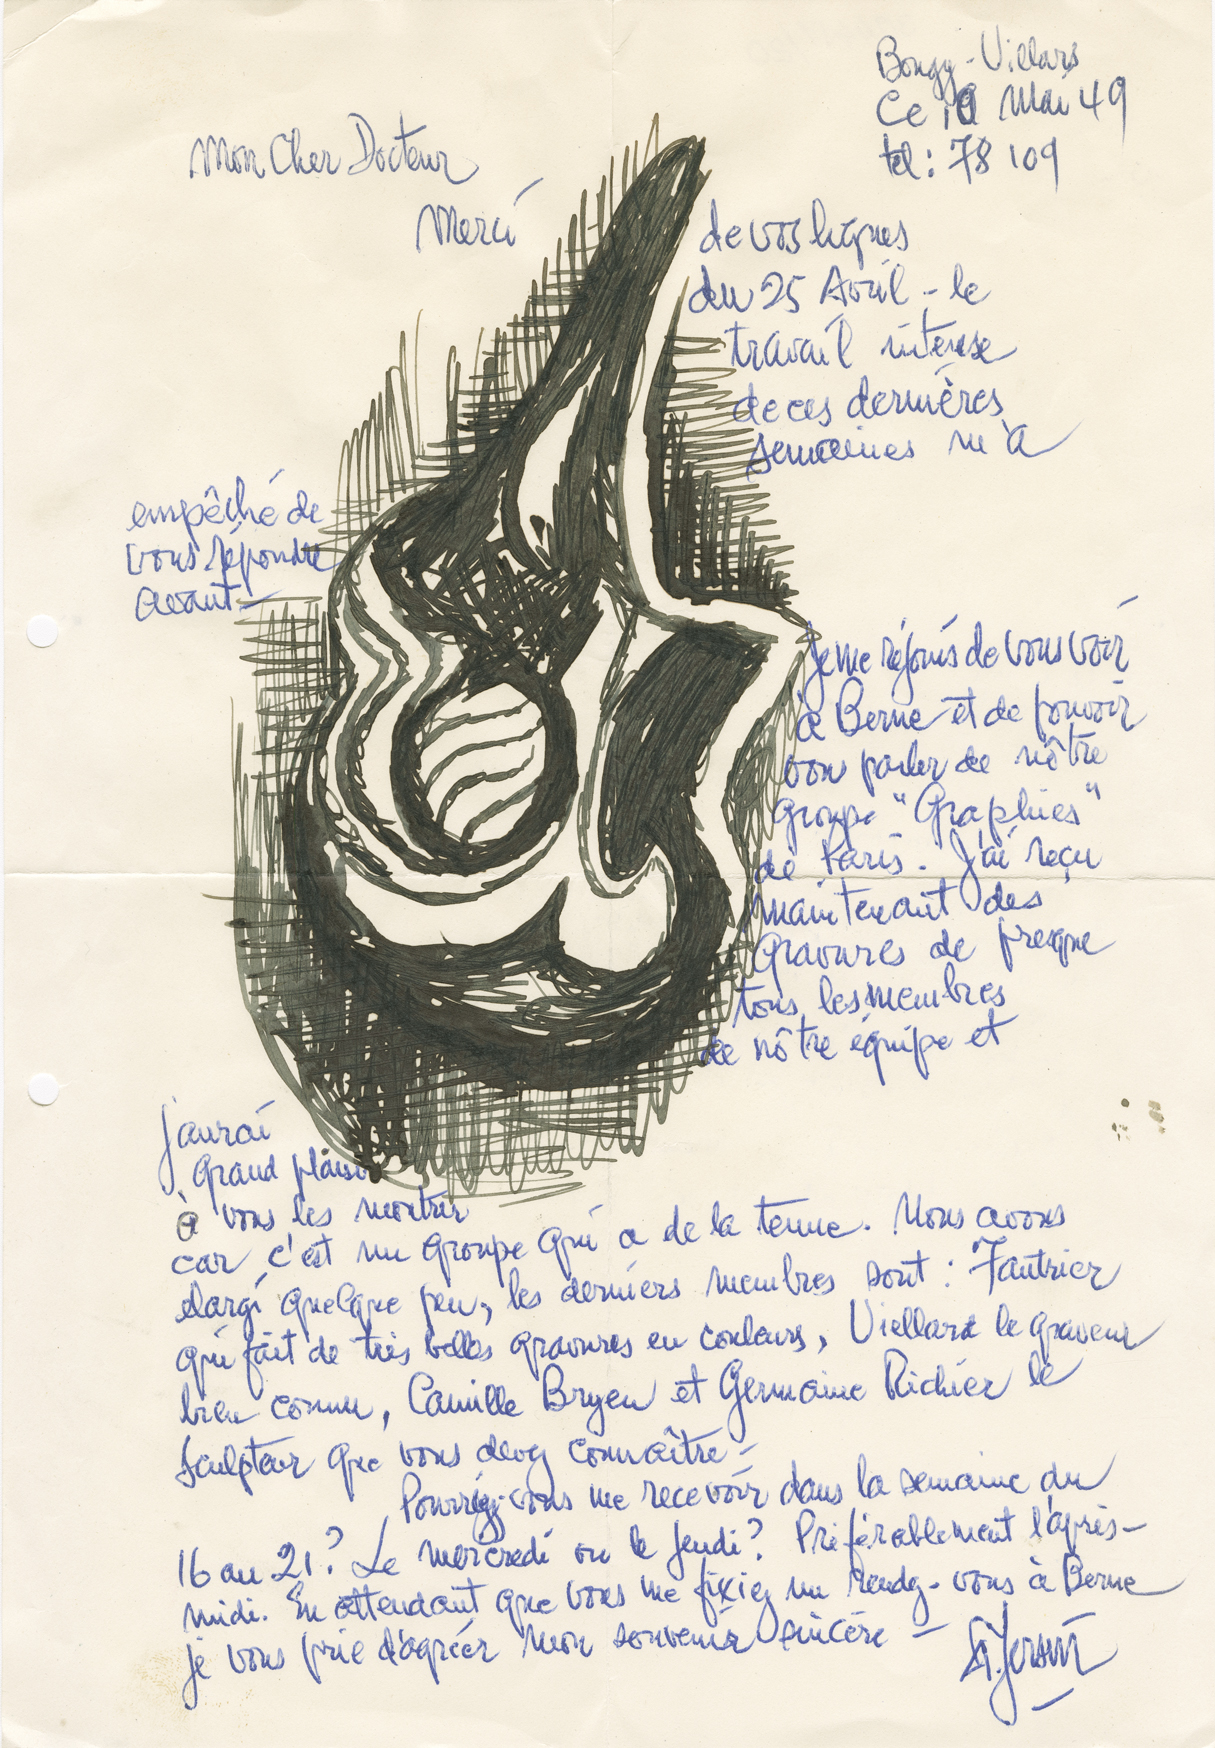 Bougy-Villars
Ce 10 Mai 49
tel: 78 109
Mon Cher Docteur
Merci de vos lignes
du 25 Avril - le
travail intense
de ces dernières
semaines m'a
empêché de
vous répondre
avant -
Je me réjouis de vous voir
à Berne et de pouvoir
vous parler de nôtre
groupe "Graphies"
de Paris. J'ai reçu
maintenant des
gravures de presque
tous les membres
de nôtre équipe et
j'aurai
grand plaisir
à vous les montrer
car c'est un groupe qui a de la tenue. Nous avons
élargi quelque peu, les derniers membres sont : Fautrier
qui fait de très belles gravures en couleurs, Viellard le graveur
bien connu, Camille Bryen et Germaine Richier le
sculpteur que vous devez connaître -
Pourriez-vous me recevoir dans la semaine du
16 au 21? Le mercredi ou le Jeudi? Préférablement l'après-
midi. En attendant que vous me fixiez un rendez-vous à Berne
je vous prie d'agréer mon souvenir sincère -
G. Yersin